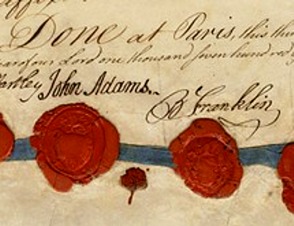 Done at Paris, this
our Lord one thousand seven hundred
artley John Adams.
B Franklin